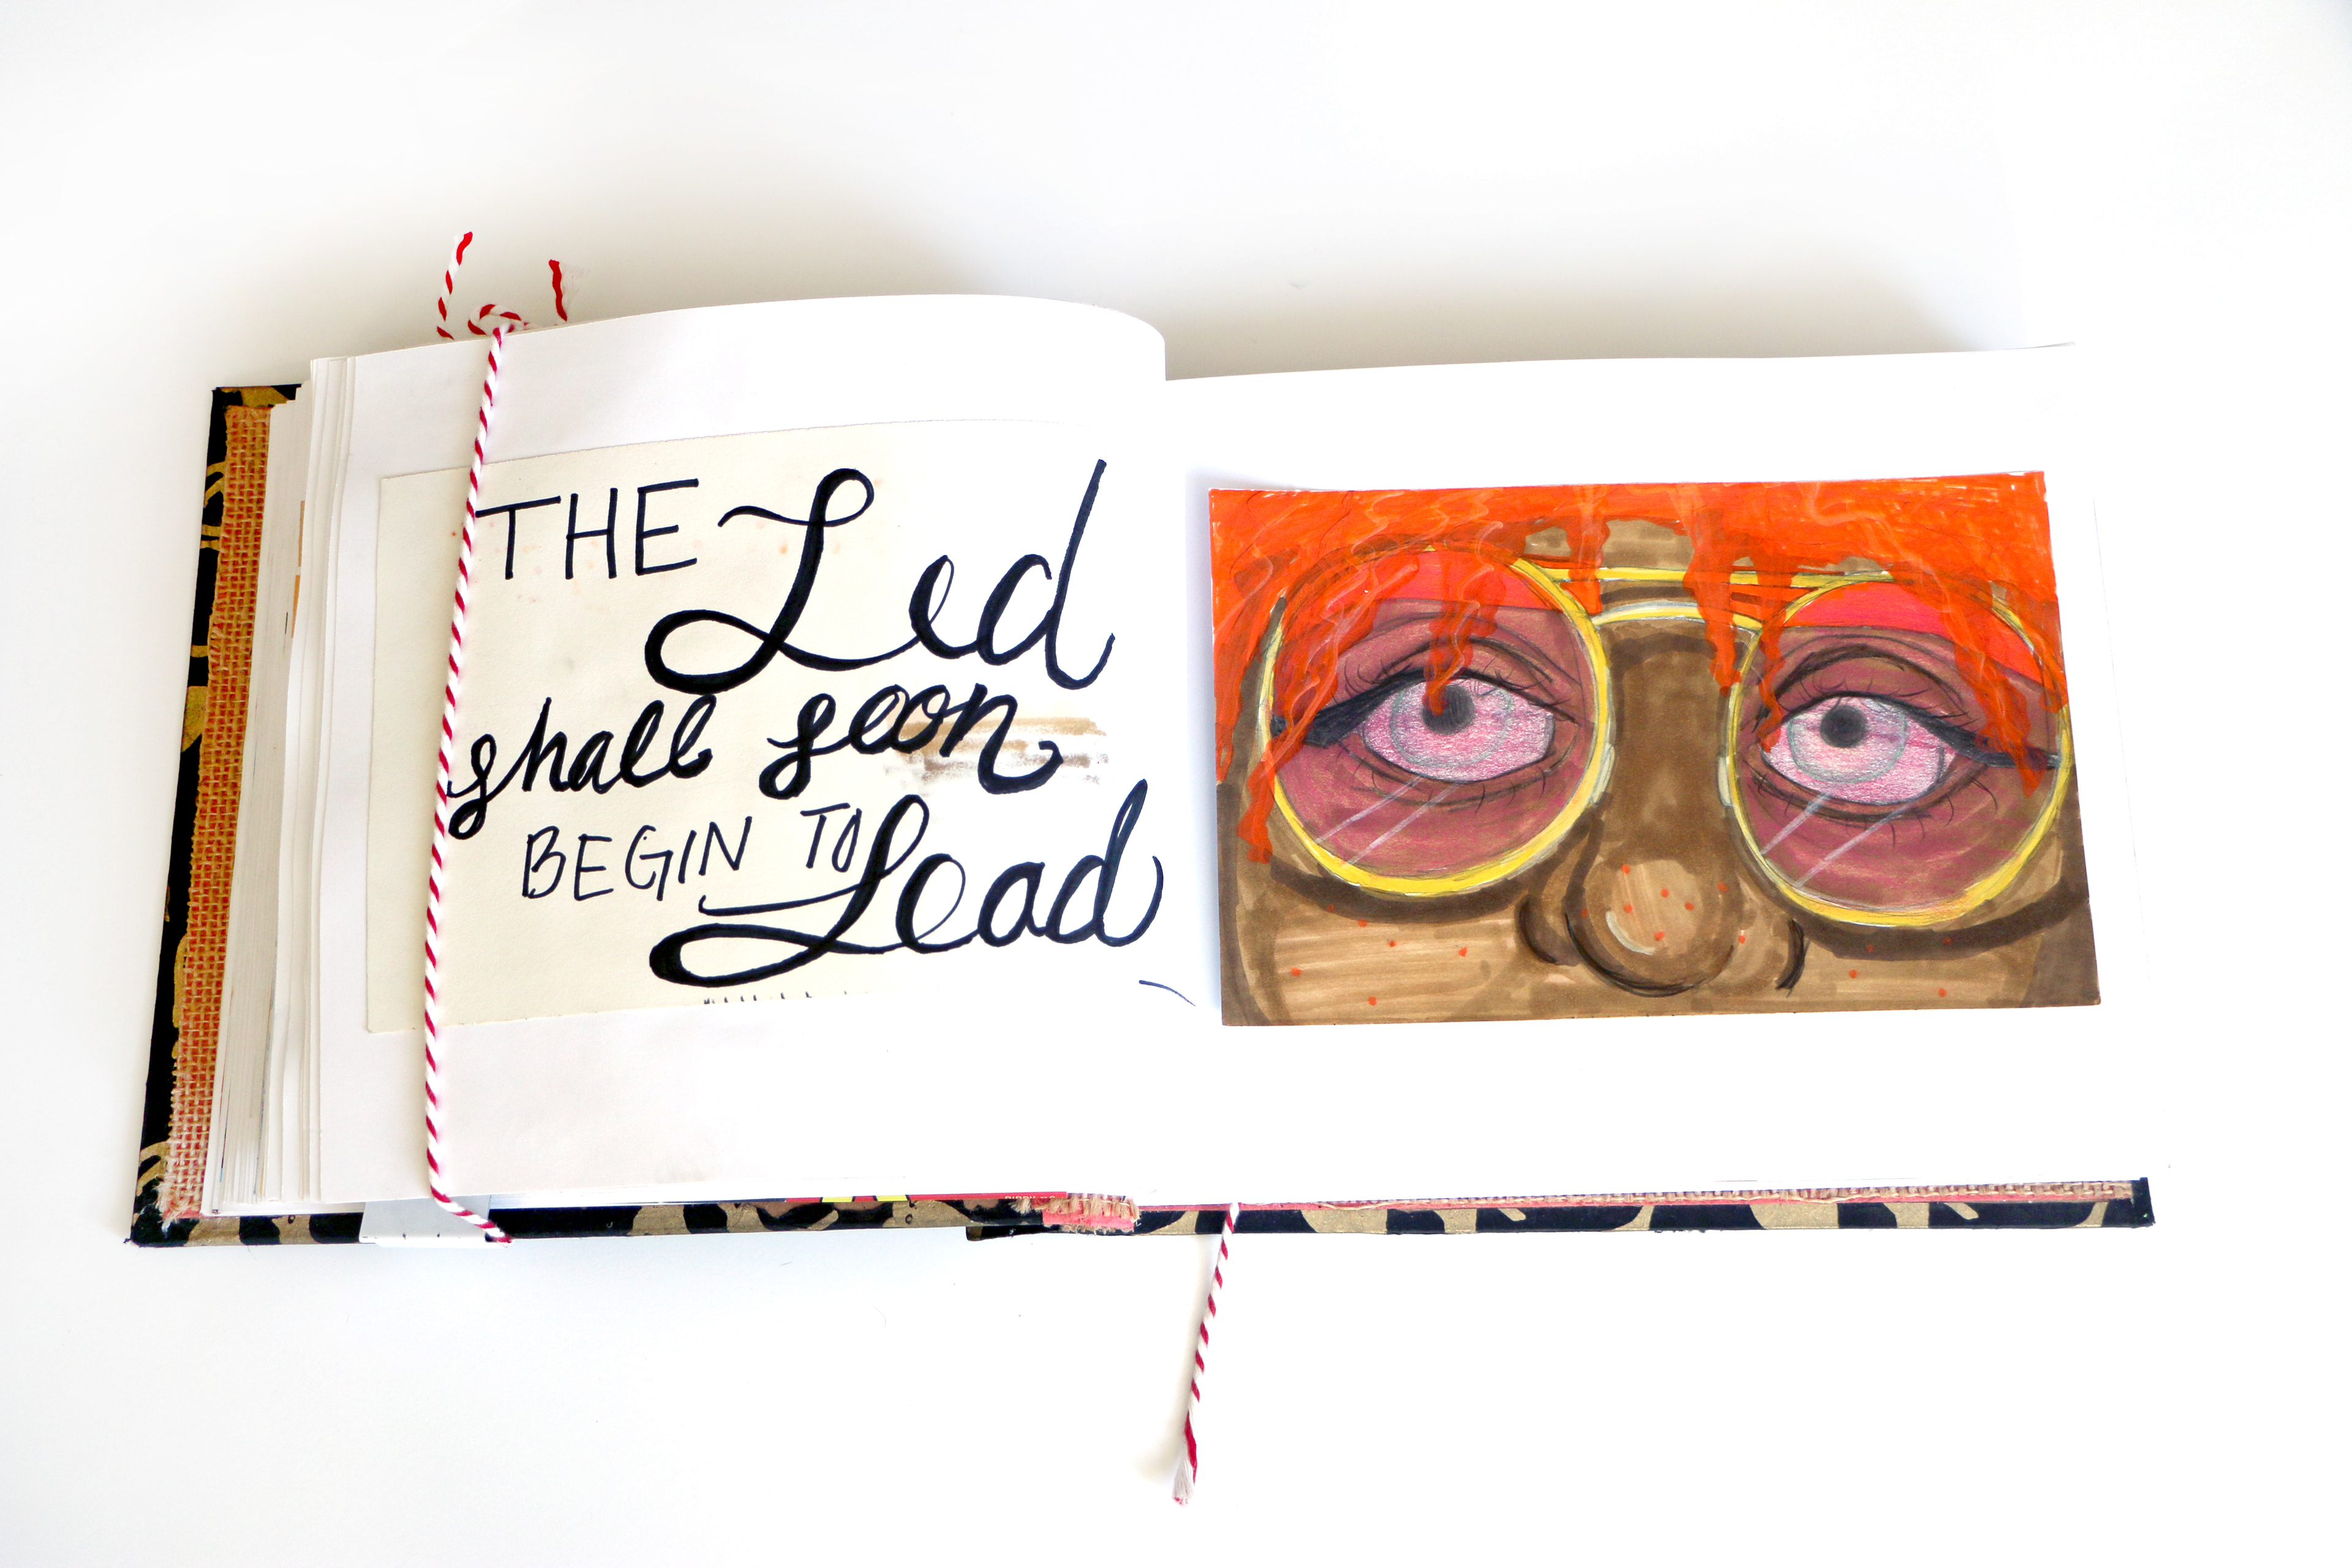 THE Led
shall soon
BEGIN TO Lead